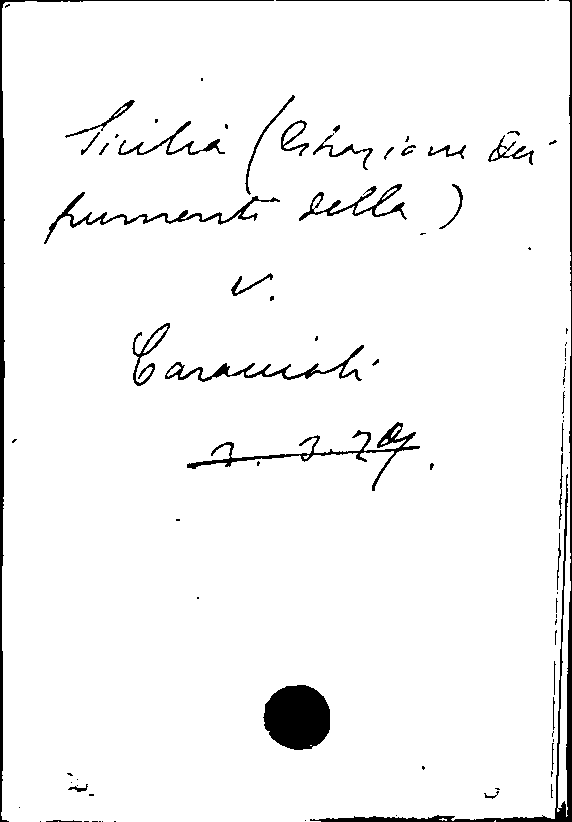 Sicilia (Estrazione dei
frumenti della)
v.
Caraccioli